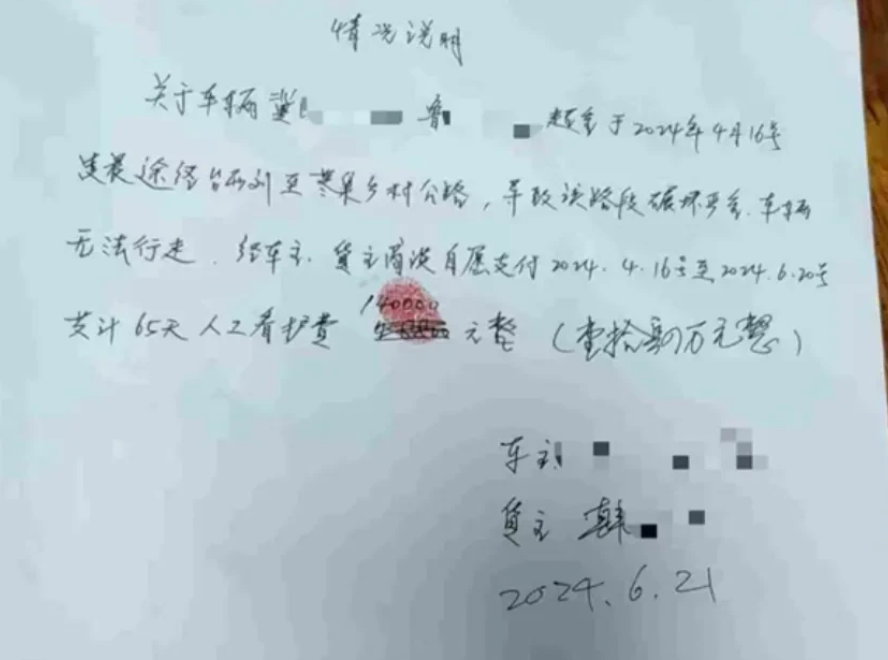 情况说明
关于车辆冀 鲁 超重于2024年4月16号
凌晨途经 刘至 集乡村公路，导致该路段碾坏严重.车辆
无法行走.经车主.货主商议自愿支付2024.4.16号至2024.6.20号
共计65天人工看护费 140000 元整（壹拾肆万元整）
车主
货主 韩
2024.6.21